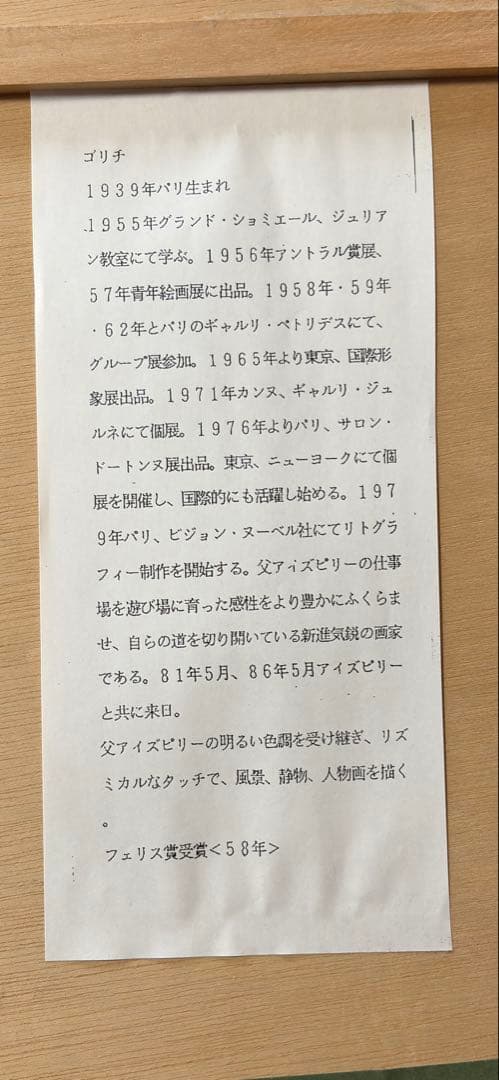 ゴリチ
1939年パリ生まれ
1955年グランド・ショミエール、ジュリア
ン教室にて学ぶ。1956年アントラル賞展、
57年青年絵画展に出品。1958年・59年
・62年とパリのギャルリ・ペトリデスにて、
グループ展参加。1965年より東京、国際形
象展出品。1971年カンヌ、ギャルリ・ジュ
ルネにて個展。1976年よりパリ、サロン・
ドートンヌ展出品。東京、ニューヨークにて個
展を開催し、国際的にも活躍し始める。197
9年パリ、ビジョン・ヌーベル社にてリトグラ
フィー制作を開始する。父アイズピリーの仕事
場を遊び場に育った感性をより豊かにふくらま
せ、自らの道を切り開いている新進気鋭の画家
である。81年5月、86年5月アイズピリー
と共に来日。
父アイズピリーの明るい色調を受け継ぎ、リズ
ミカルなタッチで、風景、静物、人物画を描く
。
フェリス賞受賞<58年>